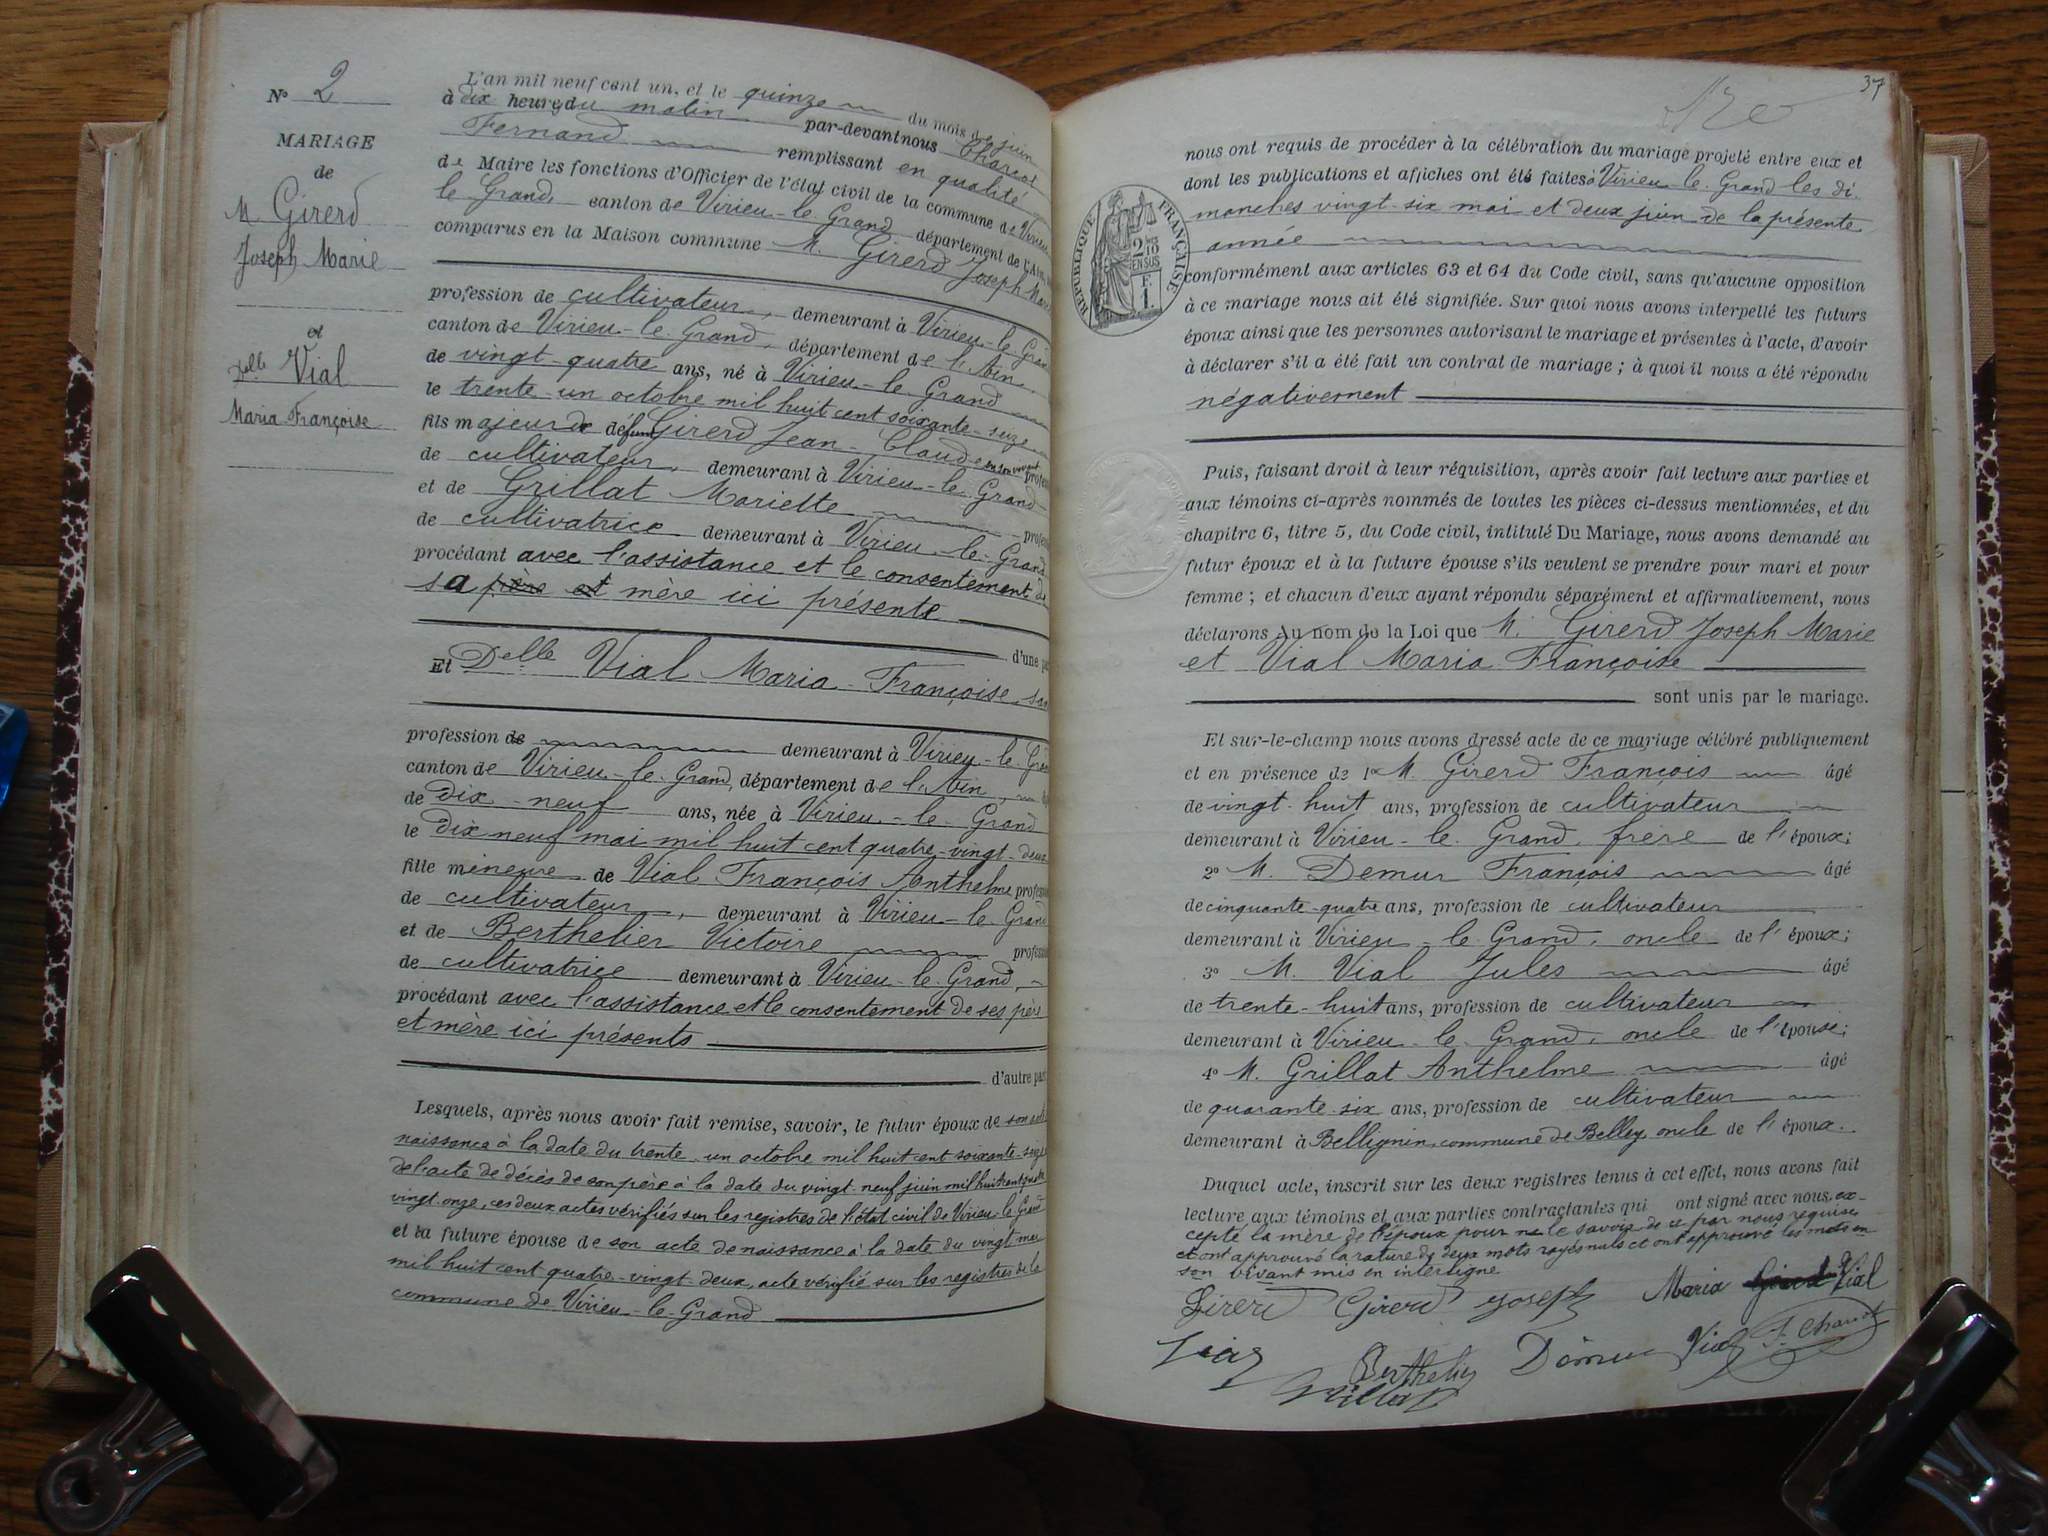 N° 2
MARIAGE
de
M Girerd
Joseph Marie
et
Delle Vial
Maria Françoise
L'an mil neuf cent un, et le quinze du mois de juin
à dix heures du matin par-devant nous Charcot
Fernand remplissant en qualité
de Maire les fonctions d'Officier de l'état civil de la commune de Virieu
le Grand, canton de Virieu-le-Grand département de l'Ain,
comparus en la Maison commune M. Girerd Joseph Marie
profession de cultivateur, demeurant à Virieu-le-Grand
canton de Virieu-le-Grand, département de l'Ain,
de vingt-quatre ans, né à Virieu-le-Grand
le trente-un octobre mil huit cent soixante-seize
fils majeur de défunt Girerd Jean-Claude en son vivant profess
de cultivateur, demeurant à Virieu-le-Grand
et de Grillat Mariette profess
de cultivatrice demeurant à Virieu-le-Grand
procédant avec l'assistance et le consentement de
sa père et mère ici présente
d'une part
Et Delle Vial Maria Françoise, san
profession de demeurant à Virieu-le-Grand
canton de Virieu-le-Grand, département de l'Ain,
de dix-neuf ans, née à Virieu-le-Grand
le dix neuf mai mil huit cent quatre-vingt-deux
fille mineure de Vial François Anthelme, profess
de cultivateur, demeurant à Virieu-le-Grand
et de Berthelier Victoire profess
de cultivatrice demeurant à Virieu-le-Grand,
procédant avec l'assistance et le consentement de ses père
et mère ici présents
d'autre part
Lesquels, après nous avoir fait remise, savoir, le futur époux de son acte
naissance à la date du trente-un octobre mil huit cent soixante-seize
de l'acte de décès de son père à la date du vingt-neuf juin mil huit cent quatre
vingt-onze, ces deux actes vérifiés sur les registres de l'état civil de Virieu-le-Grand
et la future épouse de son acte de naissance à la date du vingt mai
mil huit cent quatre-vingt-deux, acte vérifié sur les registres de la
commune de Virieu-le-Grand
37
nous ont requis de procéder à la célébration du mariage projeté entre eux et
dont les publications et affiches ont été faites à Virieu-le-Grand les di-
manches vingt-six mai et deux juin de la présente
année
RÉPUBLIQUE FRANÇAISE
2/10 EN SUS
F. 1.
conformément aux articles 63 et 64 du Code civil, sans qu'aucune opposition
à ce mariage nous ait été signifiée. Sur quoi nous avons interpellé les futurs
époux ainsi que les personnes autorisant le mariage et présentes à l'acte, d'avoir
à déclarer s'il a été fait un contrat de mariage ; à quoi il nous a été répondu
négativement
Puis, faisant droit à leur réquisition, après avoir fait lecture aux parties et
aux témoins ci-après nommés de toutes les pièces ci-dessus mentionnées, et du
chapitre 6, titre 5, du Code civil, intitulé Du Mariage, nous avons demandé au
futur époux et à la future épouse s'ils veulent se prendre pour mari et pour
femme ; et chacun d'eux ayant répondu séparément et affirmativement, nous
déclarons Au nom de la Loi que M. Girerd Joseph Marie
et Vial Maria Françoise
sont unis par le mariage.
Et sur-le-champ nous avons dressé acte de ce mariage célébré publiquement
et en présence de 1° M. Girerd François âgé
de vingt-huit ans, profession de cultivateur
demeurant à Virieu-le-Grand, frère de l'époux;
2° M. Demur François âgé
de cinquante-quatre ans, profession de cultivateur
demeurant à Virieu-le-Grand, oncle de l'époux;
3° M. Vial Jules âgé
de trente-huit ans, profession de cultivateur
demeurant à Virieu-le-Grand, oncle de l'épouse;
4° M. Grillat Anthelme âgé
de quarante-six ans, profession de cultivateur
demeurant à Bellignin, commune de Belley, oncle de l'époux.
Duquel acte, inscrit sur les deux registres tenus à cet effet, nous avons fait
lecture aux témoins et aux parties contractantes qui ont signé avec nous, ex-
cepté la mère de l'époux pour ne le savoir de ce par nous requise
et ont approuvé la rature de deux mots rayés nuls et ont approuvé les mots en
son vivant mis en interligne
Girerd Girerd Joseph Maria Girerd Vial
Vial Berthelier Dèmur Vial F. Charcot
Grillat